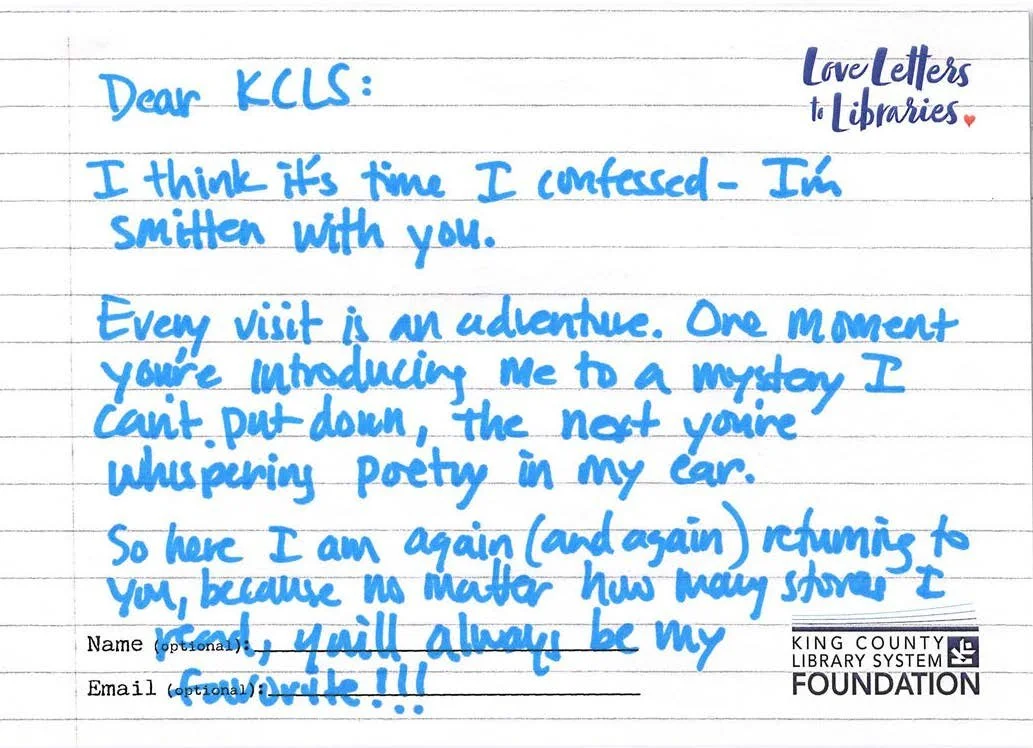 Love Letters
to Libraries
Dear KCLS:
I think it's time I confessed - I'm
smitten with you.
Every visit is an adventure. One moment
you're introducing me to a mystery I
can't put down, the next you're
whispering poetry in my ear.
So here I am again (and again) returning to
you, because no matter how many stories I
read, you'll always be my
favorite!!!
Name (optional):
Email (optional):
KING COUNTY
LIBRARY SYSTEM
FOUNDATION